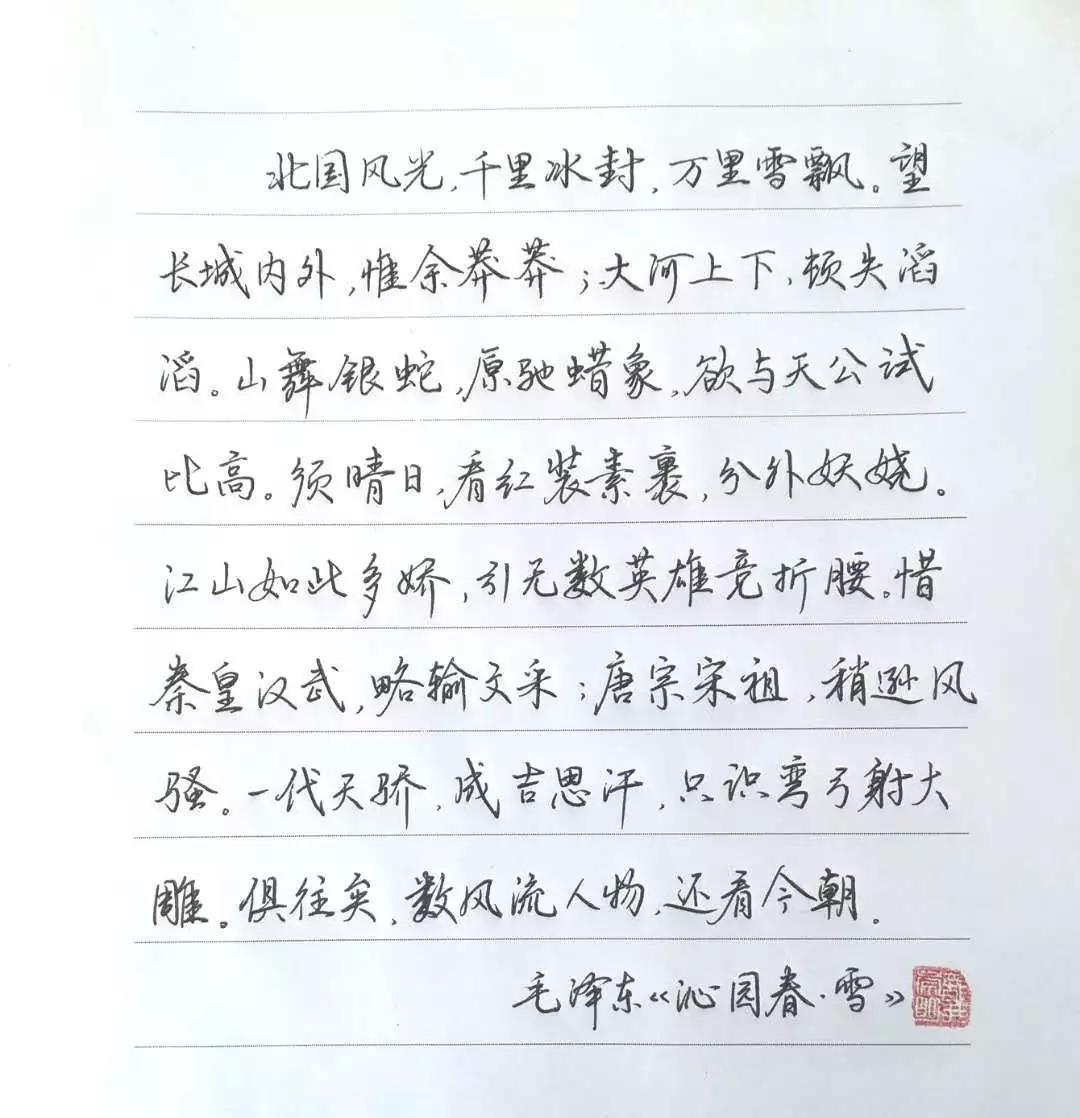 北国风光,千里冰封,万里雪飘。望
长城内外,惟余莽莽;大河上下,顿失滔
滔。山舞银蛇,原驰蜡象,欲与天公试
比高。须晴日,看红装素裹,分外妖娆。
江山如此多娇,引无数英雄竞折腰。惜
秦皇汉武,略输文采;唐宗宋祖,稍逊风
骚。一代天骄,成吉思汗,只识弯弓射大
雕。俱往矣,数风流人物,还看今朝。
毛泽东《沁园春·雪》